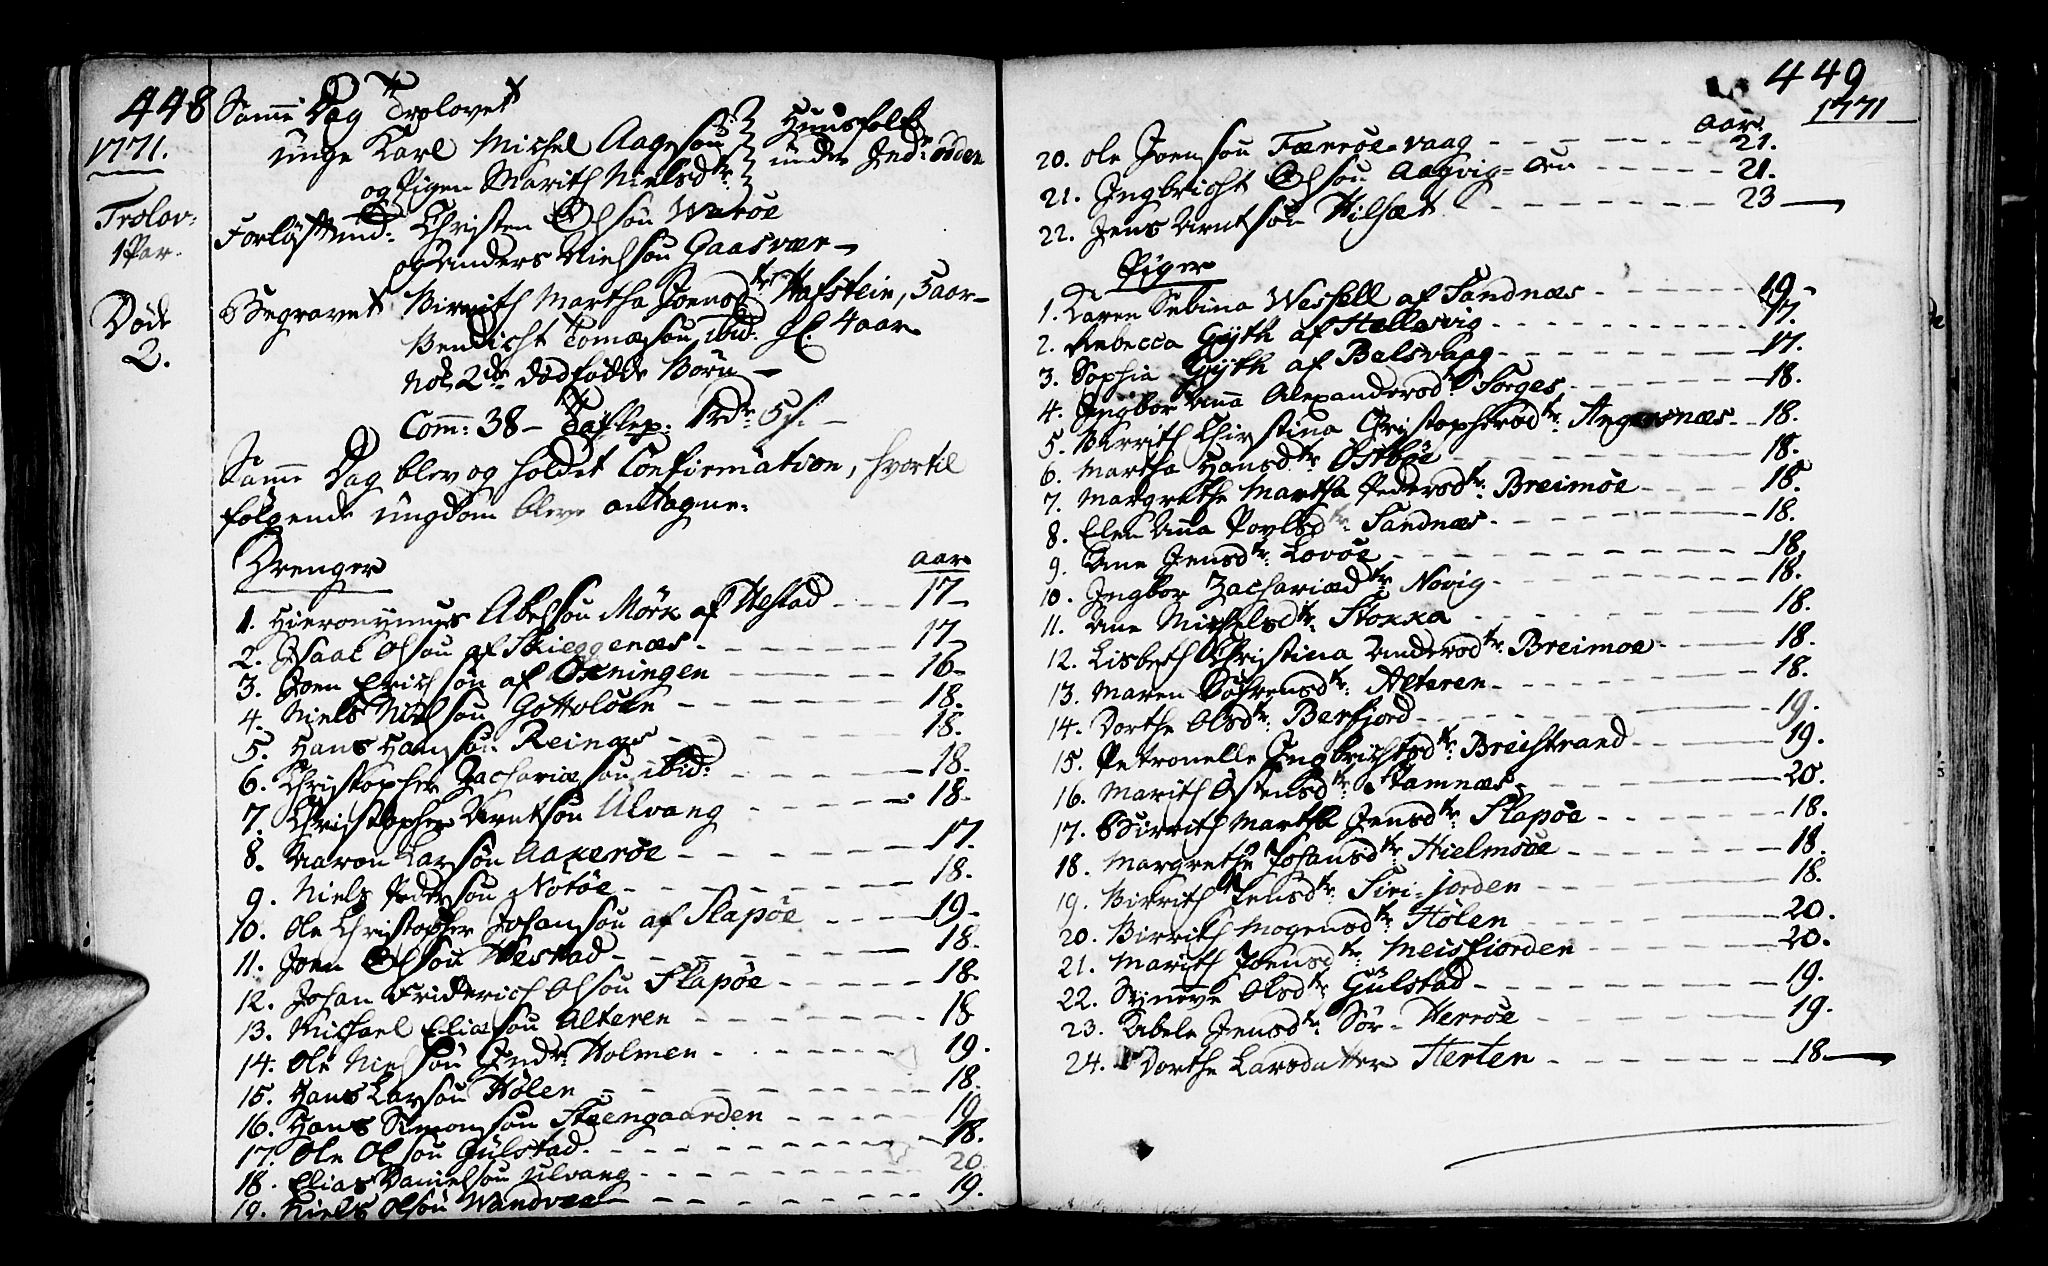 448
1771.
Trolov:
1 Par.
Døde
2.
Samme Dag Trolovet
unge Karl Michel Aagesøn
og Pigen Marith Nielsdtr: Huusfolk under Indr: Odden
Forløftsmd: Christen Olsøn Warøe
og Anders Nielsøn Gaasvær
Begravet Birrith Martha Joensdtr Hafstein, 3 aar
Bendicht Tomæsøn ibid: gl. 4 aar
Nok 2de dødfødde Børn
Comm: 38 – 1 rdr: 5 s.
Samme Dag blev og holdet Confirmation, hvortil
følgende ungdom bleve antagne.
Drenger
aar
1. Hieronymus Abelsøn Mørk af Hestad 17
2. Isaac Olsøn af Skieggenæs 17
3. Joen Erichsøn af Oxningen 16
4. Niels Nielsøn 18.
5. Hans Hansøn Reinæs 18.
6. Christopher Zachariæsøn ibid: 18.
7. Christopher Arntsøn Ulvang 18.
8. Aaron Larsøn Aakerøe 17.
9. Niels Pedersøn Nötöe 18.
10. Ole Christopher Johansøn af Slapøe 19.
11. Joen Olsøn Hestad 18.
12. Johan Friderich Olsøn Slapøe 18.
13. Michael Eliæsøn Alteren 18
14. Ole Nielsøn Indr: Holmen 19.
15. Hans Larsøn Hölen 18.
16. Hans Simonsøn Steengaarden 19
17. Ole Olsøn Gülstad 18.
18. Elias Danielsøn Ulvang 20
19. Niels Olsøn Wandvee 19.
449
1771
aar.
20. Ole Joensøn Færröe-vaag 21.
21. Ingbricht Olsøn Aagvig-Øen 21.
22. Jens Arntsøn Hilsæt 23
Piger
1. Karen Sebina Wessell af Sandnæs 19
2. Rebecca Gyth af Hellesvig 17.
3. Sophia Gyth af Belsvaag 17.
4. Ingbor Anna Alexandersdtr: Torges 18.
5. Birrith Christina Christophersdtr: Angersnæs 18.
6. Martha Hansdtr: Östbøe 18.
7. Margrethe Martha Pedersdtr: Breimöe 18.
8. Elen Anna Povlsdtr: Sandnæs 18.
9. Ane Jensdtr: Lovöe 18.
10. Ingbor Zachariædtr: Novig 18.
11. Ane Michelsdtr: Stokka 18.
12. Lisbeth Christina Andersdtr: Breimoe 18.
13. Maren Søfrensdtr: Alteren 18.
14. Dorthe Olsdtr: Berfjord 19.
15. Petronelle Ingbrichtsdtr: Breistrand 19.
16. Marith Ostensdtr: Stamnæs 20.
17. Birrith Martha Jensdtr: Slapöe 18.
18. Margrethe Johansdtr: Hielmsöe 18.
19. Birrith Jensdtr: Siri-jorden 18.
20. Birrith Mogensdtr: Hölen 20.
21. Marith Joensdtr: Meisfjorden 20.
22. Synneve Olsdtr: Gülstad 19.
23. Abele Jensdtr: Sör-Herröe 19.
24. Dorthe Larsdatter Sterten 18.